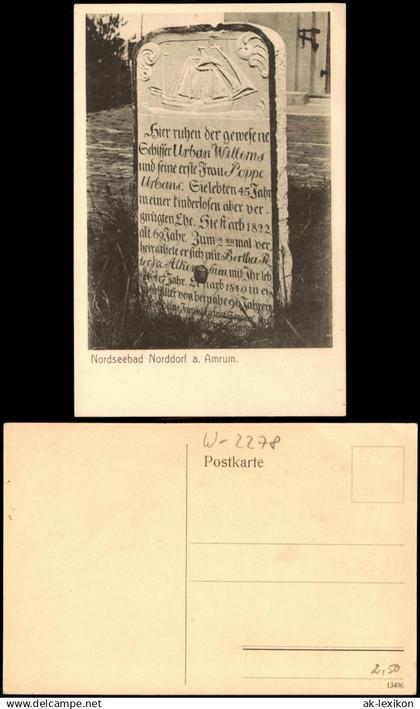 Hier ruhen der gewesene
Schiffer Urban Willems
und seine erste Frau Poppe
Urbans. Sie lebten 45 Jahr
in einer kinderlosen aber ver
gnügten Ehe. Sie starb 1822
alt 69 Jahr. Zum 2ten mal ver
herathete er sich mit
mit Ihr leb
Jahr. Er starb 1840 in
von beynahe 90 Jahren
Nordseebad Norddorf a. Amrum.
W-2278
Postkarte
2,50
13496
www.ansichtskarten-lexikon.de
ak-lexikon.com